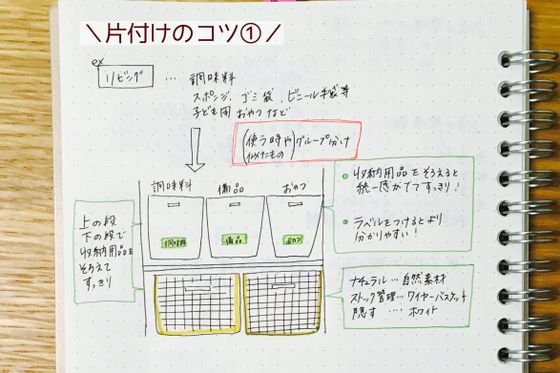 ＼片付けのコツ①／
ex
リビング … 調味料
スポンジ、ゴミ袋、ビニール手袋等
子ども用おやつなど
(使う時や
似たもの)グループ分け
調味料 備品 おやつ
調味料 備品 おやつ
上の段
下の段で
収納用品を
そろえて
すっきり
収納用品をそろえると
統一感がでてすっきり!
ラベルをつけるとより
分かりやすい!
ナチュラル… 自然素材
ストック管理… ワイヤーバスケット
隠す …. ホワイト